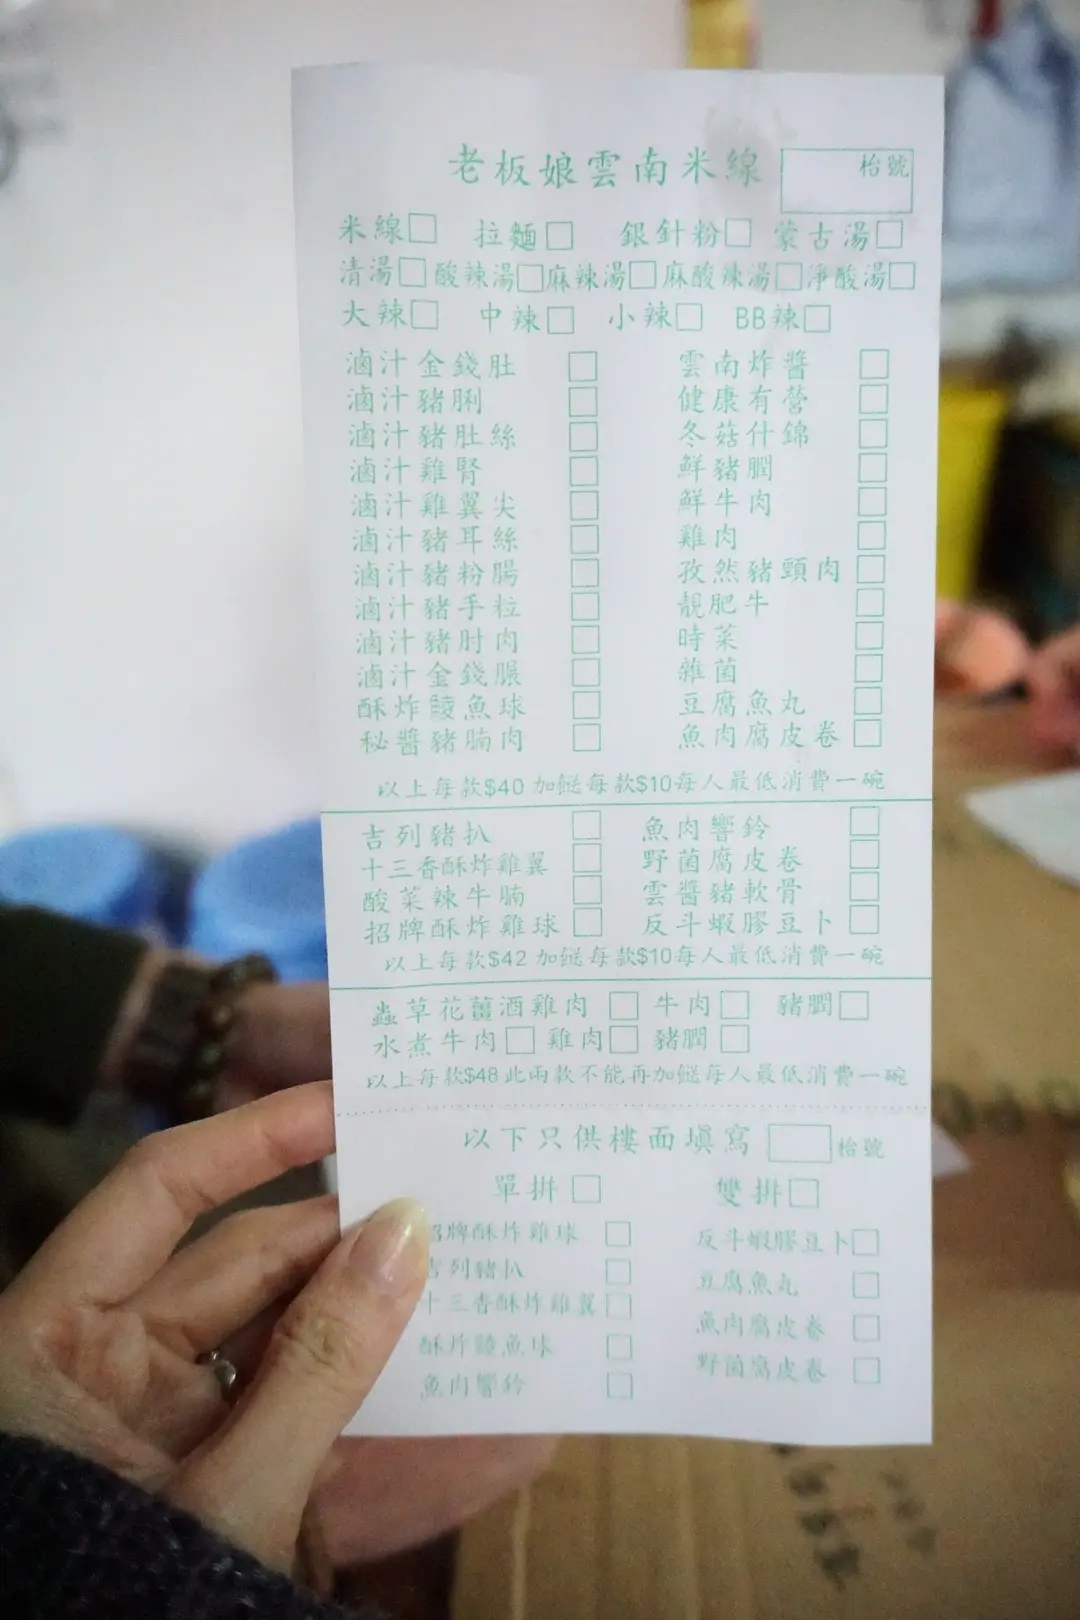 老板娘雲南米線 枱號
米線□ 拉麵□ 銀針粉□ 蒙古湯□
清湯□ 酸辣湯□ 麻辣湯□ 麻酸辣湯□ 淨酸湯□
大辣□ 中辣□ 小辣□ BB辣□
滷汁金錢肚□ 雲南炸醬□
滷汁豬脷□ 健康有營□
滷汁豬肚絲□ 冬菇什錦□
滷汁雞腎□ 鮮豬膶□
滷汁雞翼尖□ 鮮牛肉□
滷汁豬耳絲□ 雞肉□
滷汁豬粉腸□ 孜然豬頸肉□
滷汁豬手粒□ 靚肥牛□
滷汁豬肘肉□ 時菜□
滷汁金錢𦟌□ 雜菌□
酥炸鯪魚球□ 豆腐魚丸□
秘醬豬腩肉□ 魚肉腐皮卷□
以上每款$40加餸每款$10每人最低消費一碗
吉列豬扒□ 魚肉響鈴□
十三香酥炸雞翼□ 野菌腐皮卷□
酸菜辣牛腩□ 雲醬豬軟骨□
招牌酥炸雞球□ 反斗蝦膠豆卜□
以上每款$42加餸每款$10每人最低消費一碗
蟲草花薑酒雞肉□ 牛肉□ 豬膶□
水煮牛肉□ 雞肉□ 豬膶□
以上每款$48此兩款不能再加餸每人最低消費一碗
以下只供樓面填寫 枱號
單拼□ 雙拼□
招牌酥炸雞球□ 反斗蝦膠豆卜□
吉列豬扒□ 豆腐魚丸□
十三香酥炸雞翼□ 魚肉腐皮卷□
酥炸鯪魚球□ 野菌腐皮卷□
魚肉響鈴□